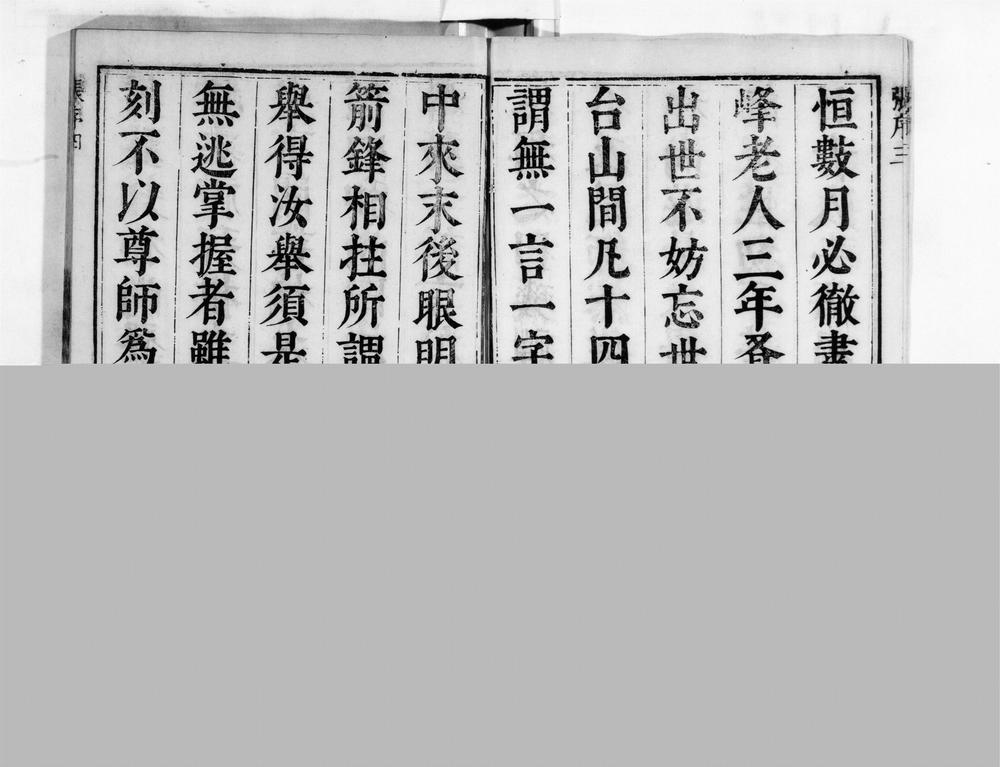 張序三
恒數月必徹晝
峰老人三年咨
出世不妨忘世
台山間凡十四
謂無一言一字
中來末後眼明
箭鋒相拄所謂
舉得汝舉須是
無逃掌握者雖
刻不以尊師為
張序四